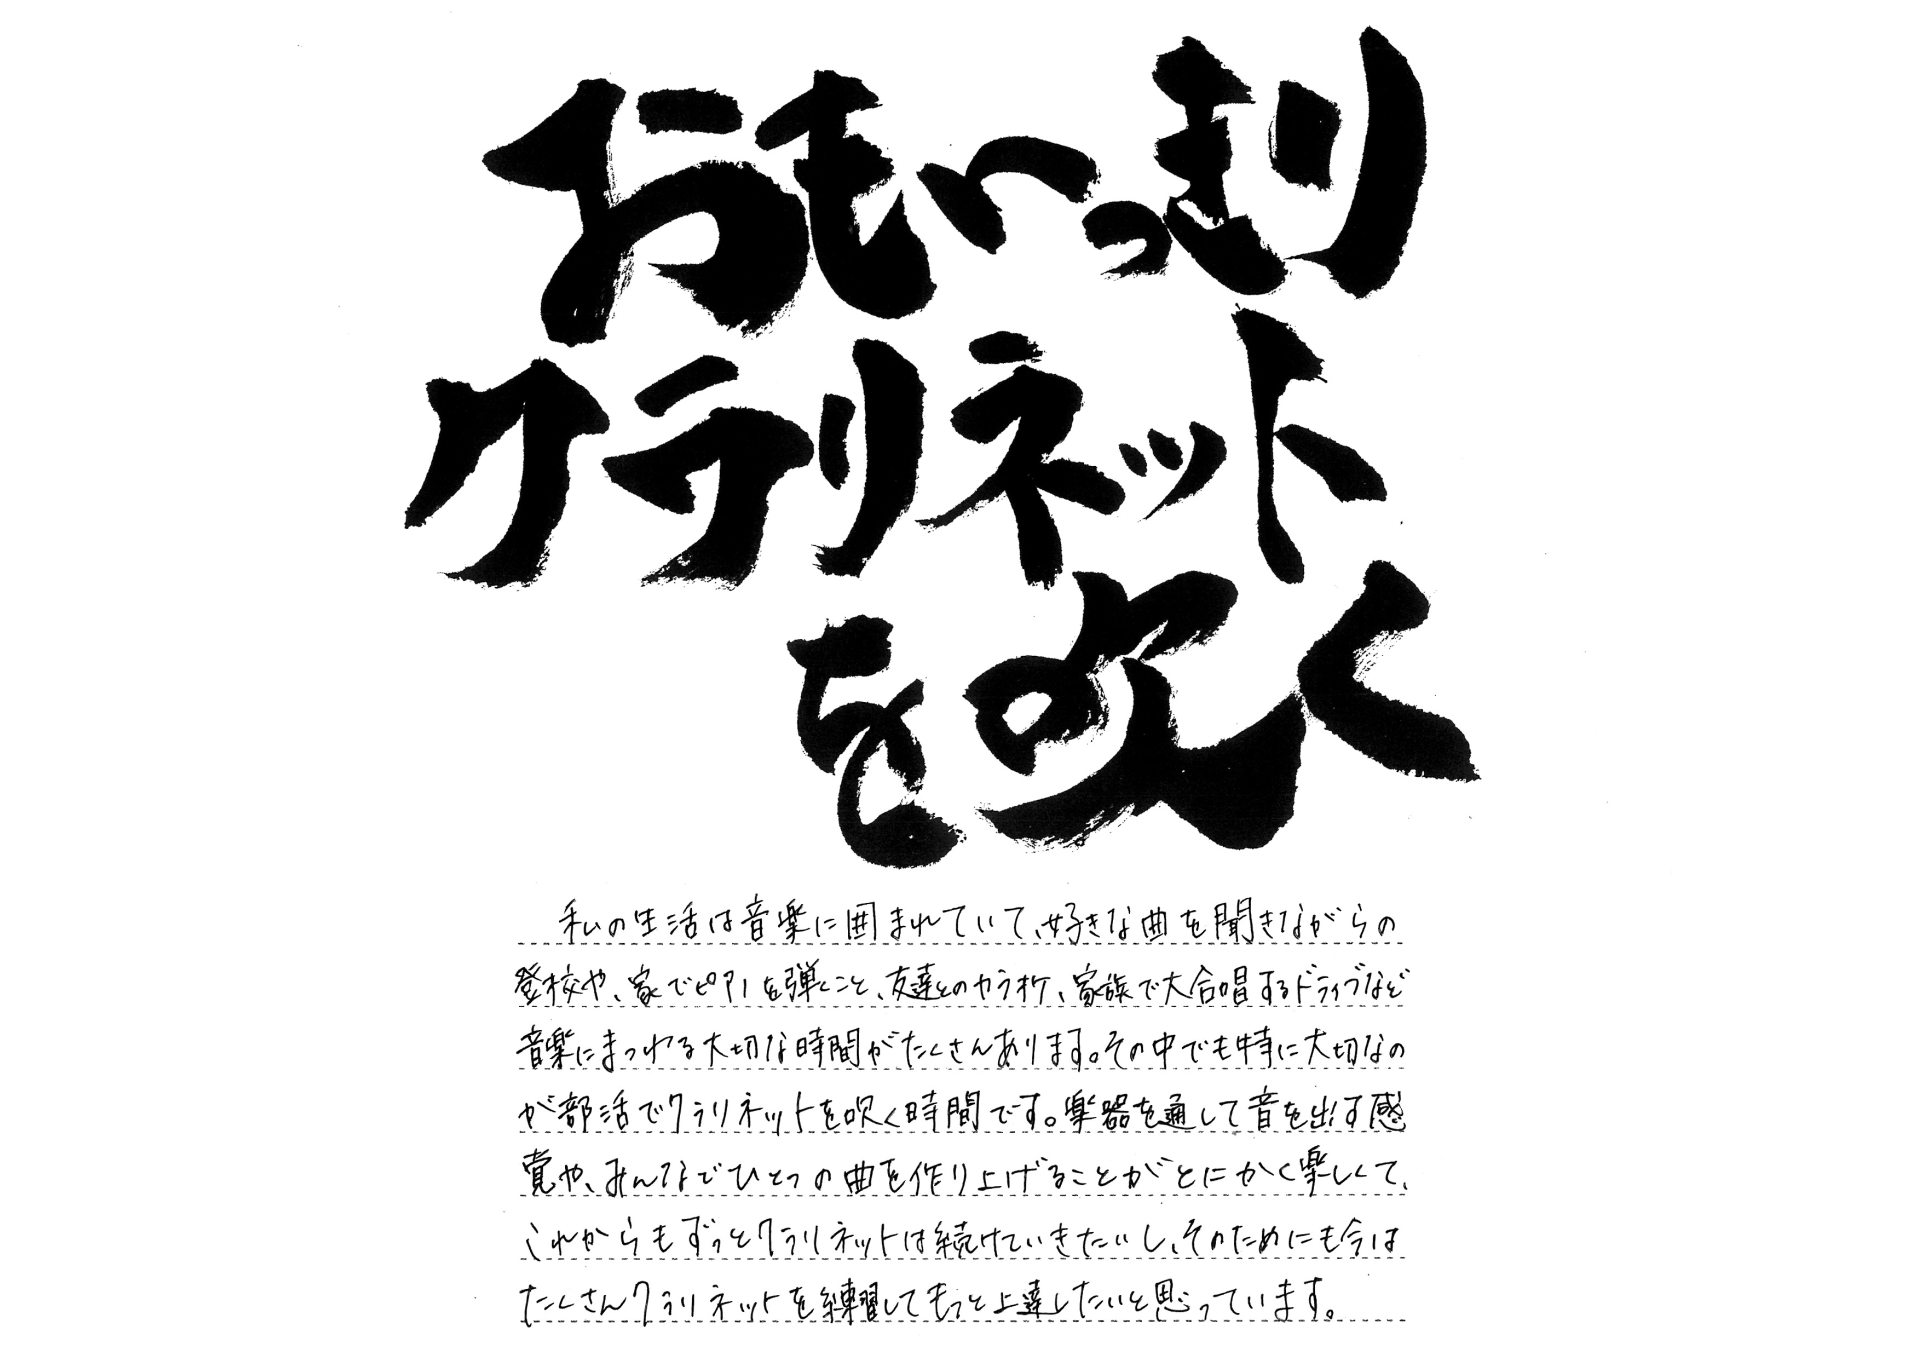 おもいっきり
クラリネット
を吹く
私の生活は音楽に囲まれていて、好きな曲を聞きながらの
登校や、家でピアノを弾くこと、友達とのカラオケ、家族で大合唱するドライブなど
音楽にまつわる大切な時間がたくさんあります。その中でも特に大切なの
が部活でクラリネットを吹く時間です。楽器を通して音を出す感
覚や、みんなでひとつの曲を作り上げることがとにかく楽しくて、
これからもずっとクラリネットは続けていきたいし、そのためにも今は
たくさんクラリネットを練習してもっと上達したいと思っています。